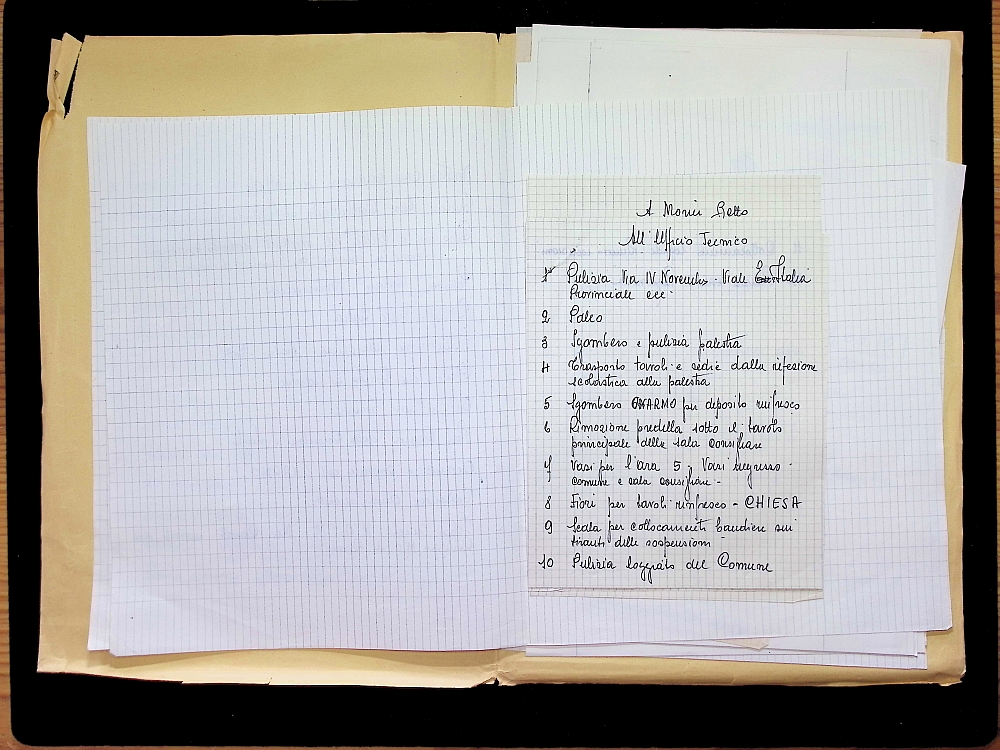 A Monici Retto
All'Ufficio Tecnico
1 Pulizia Via IV Novembre - Viale Italia
Provinciale ecc.
2 Palco
3 Sgombero e pulizia palestra
4 Trasporto tavoli e sedie dalla refezione
scolastica alla palestra
5 Sgombero per deposito rinfresco
6 Rimozione predella sotto il tavolo
principale della sala consiliare
7 Vasi per l'ara 5 - Vasi ingresso -
comune e sala consiliare -
8 Fiori per tavoli rinfresco - CHIESA
9 Scala per collocamenti bandiere sui
tiranti delle sospensioni
10 Pulizia loggiato del Comune